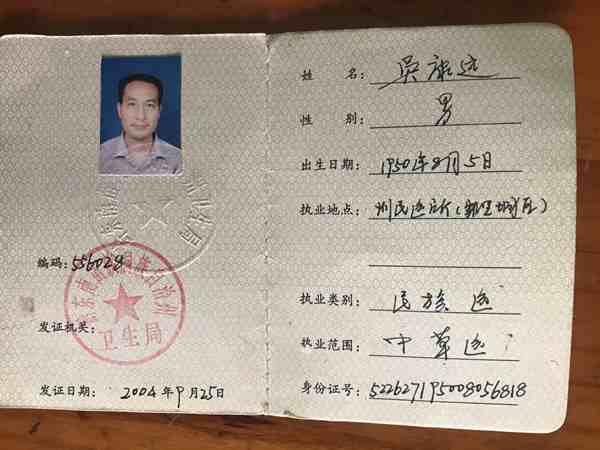 编码: 556028
卫生局
发证机关:
发证日期: 2004年9月25日
姓 名: 吴
性 别: 男
出生日期: 1950年8月5日
执业地点: 州民医 (凯里城区)
执业类别: 民族医
执业范围: 中草医
身份证号: 522627195008056818